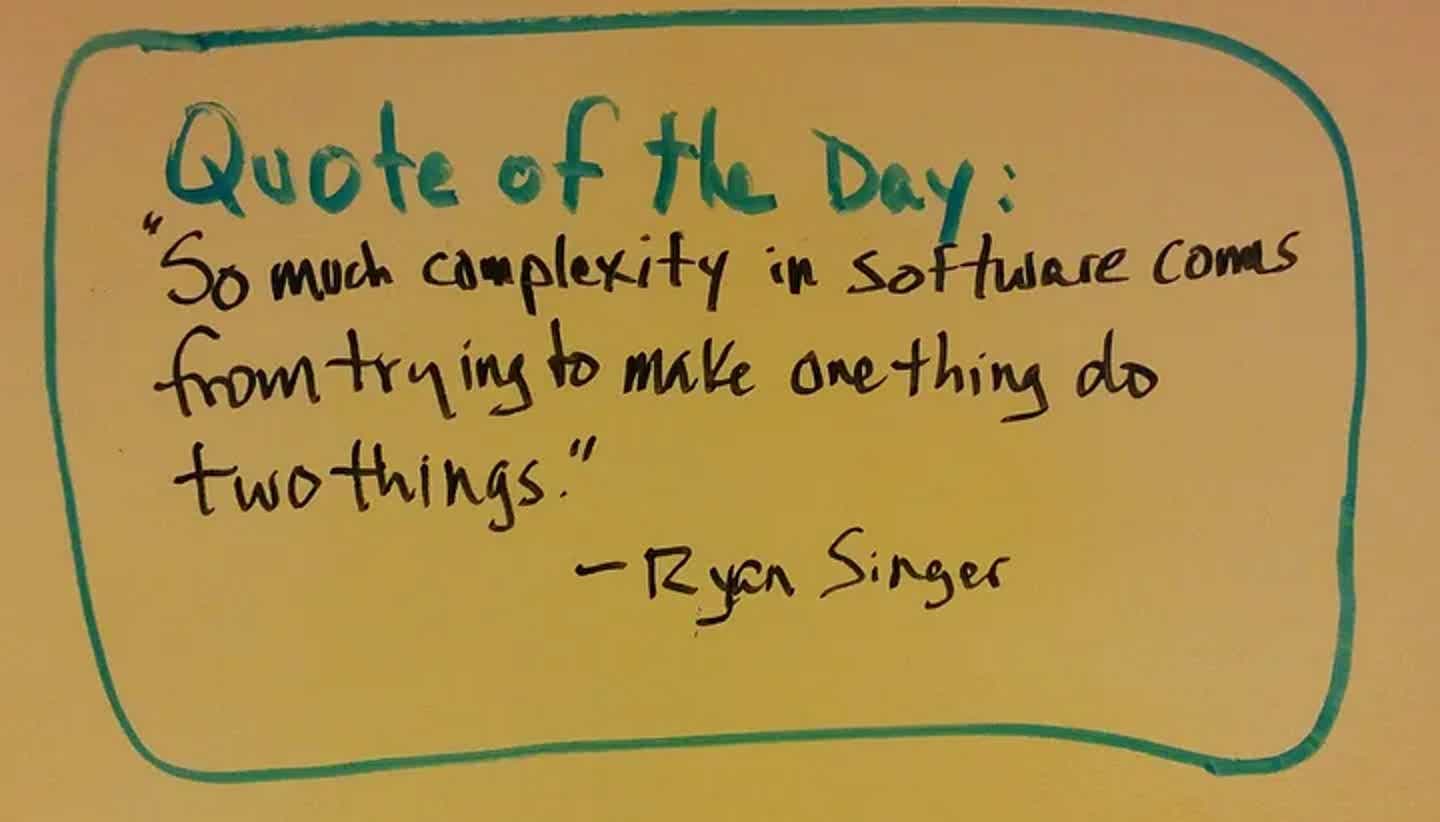 Quote of the Day:
"So much complexity in software comes
from trying to make one thing do
two things."
- Ryan Singer